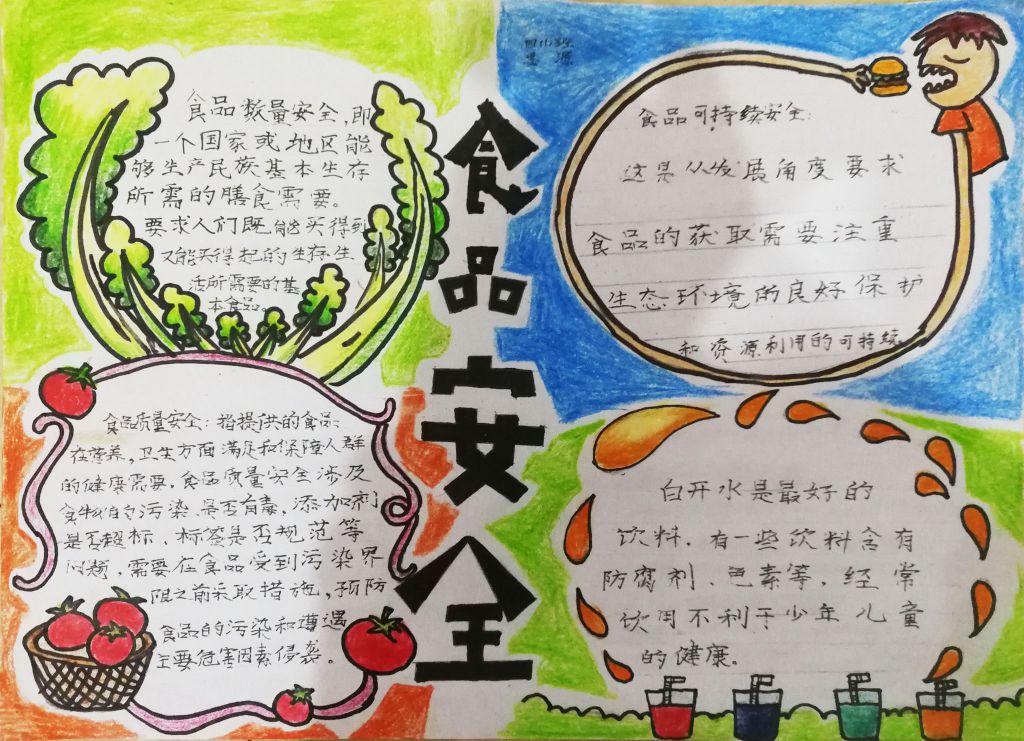 食品安全
食品数量安全，即
一个国家或地区能
够生产民族基本生存
所需的膳食需要。
要求人们既能买得到
又能买得起的生存生
活所需要的基
本食品。
食品可持续安全：
这是从发展角度要求
食品的获取需要注重
生态环境的良好保护
和资源利用的可持续。
食品质量安全：指提供的食品
在营养，卫生方面满足和保障人群
的健康需要，食品质量安全涉及
食物的污染、是否有毒，添加剂
是否超标、标签是否规范等
问题，需要在食品受到污染界
限之前采取措施，预防
食品的污染和遭遇
主要危害因素侵袭。
白开水是最好的
饮料，有一些饮料含有
防腐剂、色素等，经常
饮用不利于少年儿童
的健康。